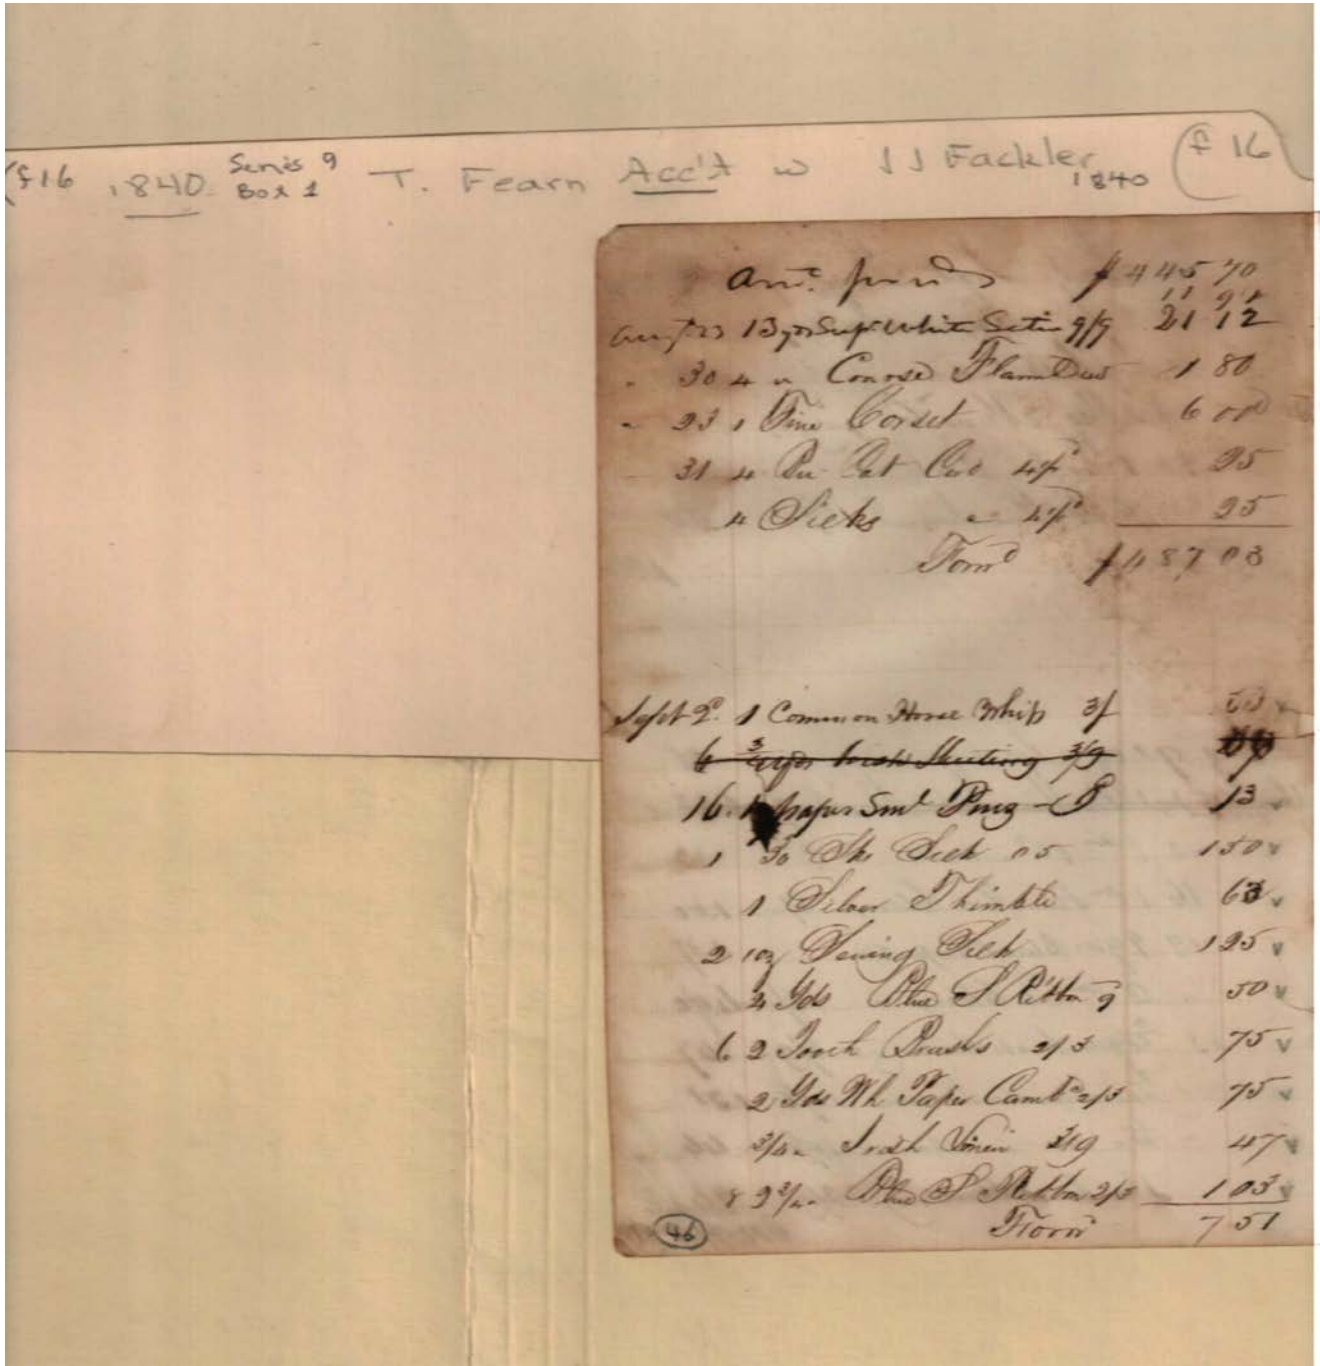 f16 1840 Series 9 Box 1 T. Fearn Acc't w JJ Fackler 1840 f 16
Amt. $445 70
11 91
Augt 23 13 yds Supr White Satin 9/9 21 12
" 30 4 " Coarse 1 80
" 23 1 Fine Corset 6 00
31 4 Cord 4½d 25
4 Sicks " 4½d 25
Forwd $487 03
Sept 2d. 1 Common Horse Whip 3/ 50
6 3/4 yds Irish Sheeting 3/9
16. 1 paper Sml Pins 13
1 30 Sks Silk 05 150
1 Silver Thimble 63
2 1 oz Sewing Silk 125
4 Yds Blue S Ribbon 9 50
6 2 Tooth Brushs 2/3 75
2 Yds Wh Paper Camb 2/3 75
3/4 " Irish Linen 3/9 47
8 2 3/4 " Blue S Ribbon 2/3 1 03
Forwd 7 51
46